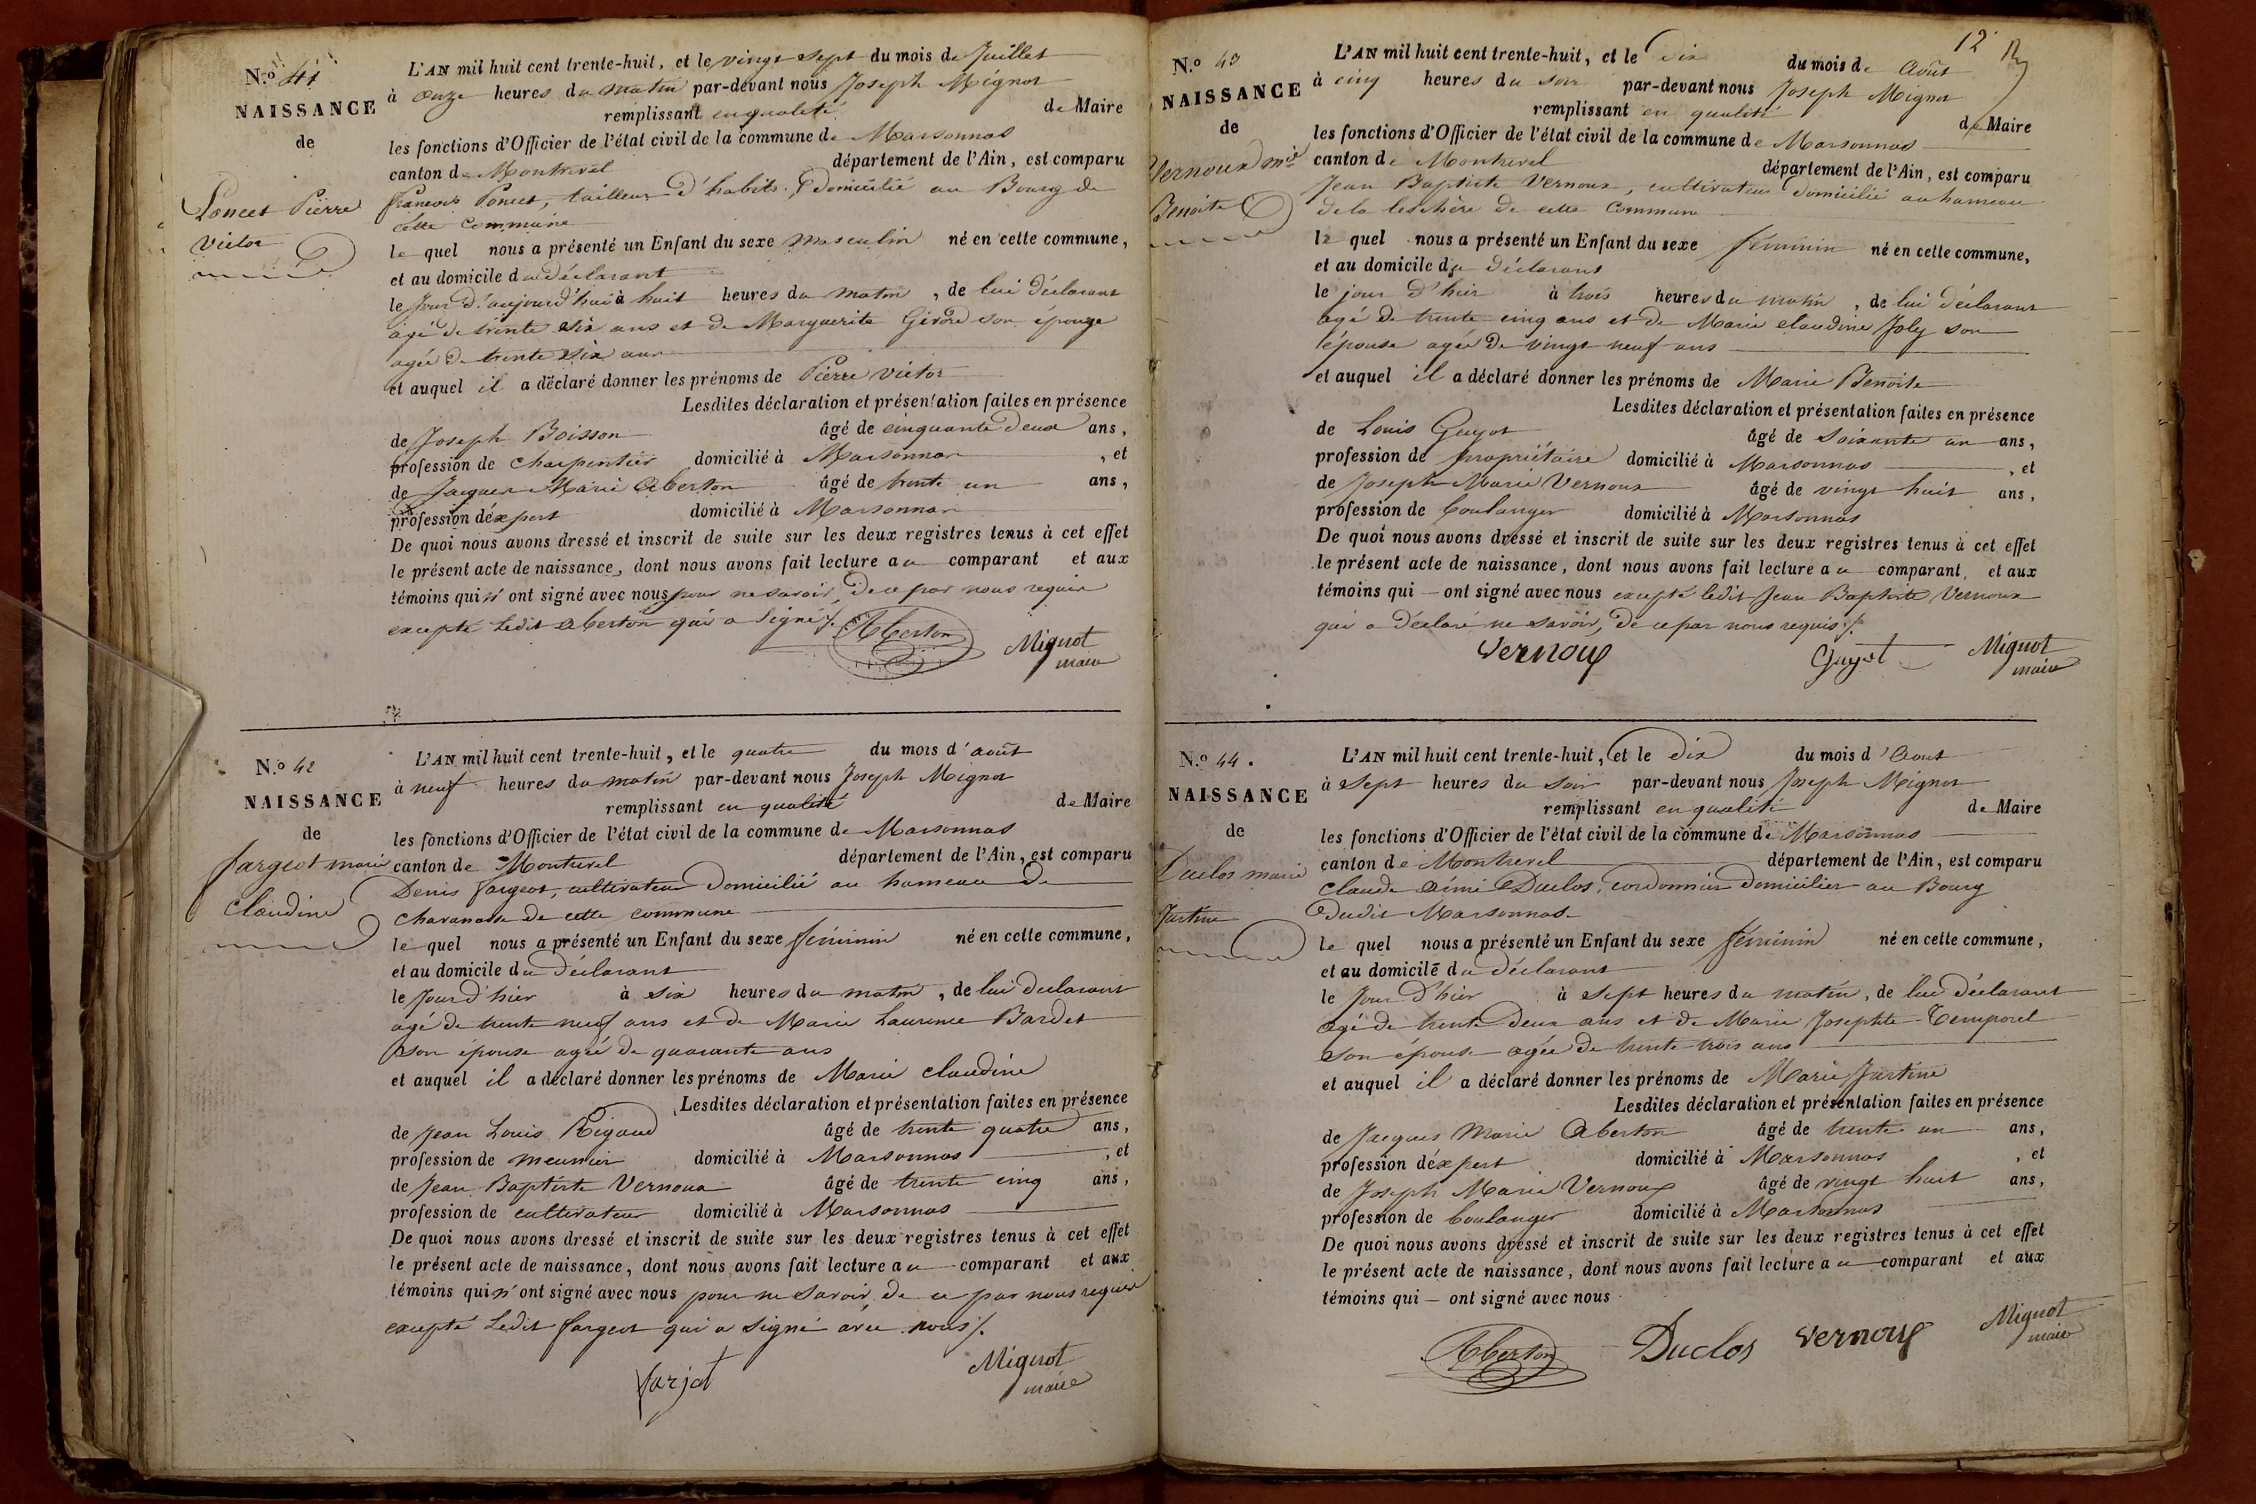 N.º 41
NAISSANCE
de
Poncet Pierre
Victor
L'AN mil huit cent trente-huit, et le vingt sept du mois de Juillet
à onze heures du matin par-devant nous Joseph Mignot
remplissant en qualité de Maire
les fonctions d'Officier de l'état civil de la commune de Marsonnas
canton de Montrevel département de l'Ain, est comparu
françois Poncet, tailleur d'habits, domicilié au Bourg de
cette commune
le quel nous a présenté un Enfant du sexe masculin né en cette commune,
et au domicile du déclarant
le Jour d'aujourd'hui à huit heures du matin, de lui déclarant
agé de trente six ans et de Marguerite Girod son épouse
agée de trente six ans
et auquel il a déclaré donner les prénoms de Pierre Victor
Lesdites déclaration et présentation faites en présence
de Joseph Boisson âgé de cinquante deux ans,
profession de charpentier domicilié à Marsonnas, et
de Jacques Marie Aberton âgé de trente un ans,
profession d'expert domicilié à Marsonnas
De quoi nous avons dressé et inscrit de suite sur les deux registres tenus à cet effet
le présent acte de naissance, dont nous avons fait lecture au comparant et aux
témoins qui n'ont signé avec nous pour ne savoir, de ce par nous requis
excepté ledit Aberton qui a signé ./.
Aberton Mignot
maire
N.º 42
NAISSANCE
de
fargeot marie
claudine
L'AN mil huit cent trente-huit, et le quatre du mois d'août
à neuf heures du matin par-devant nous Joseph Mignot
remplissant en qualité de Maire
les fonctions d'Officier de l'état civil de la commune de Marsonnas
canton de Montrevel département de l'Ain, est comparu
Denis fargeot, cultivateur domicilié au hameau de
chavanosse de cette commune
le quel nous a présenté un Enfant du sexe féminin né en cette commune,
et au domicile du déclarant
le Jour d'hier à six heures du matin, de lui declarant
agé de trente neuf ans et de Marie Laurence Bardet
son épouse agée de quarante ans
et auquel il a déclaré donner les prénoms de Marie claudine
Lesdites déclaration et présentation faites en présence
de Jean Louis Rigaud âgé de trente quatre ans,
profession de meunier domicilié à Marsonnas, et
de Jean Baptiste Vernoux âgé de trente cinq ans,
profession de cultivateur domicilié à Marsonnas
De quoi nous avons dressé et inscrit de suite sur les deux registres tenus à cet effet
le présent acte de naissance, dont nous avons fait lecture au comparant et aux
témoins qui n'ont signé avec nous pour ne savoir, de ce par nous requis
excepté Ledit fargeot qui a signé avec nous ./.
farjot Mignot
maire
12
N.º 43
NAISSANCE
de
Vernoux mie
Benoite
L'AN mil huit cent trente-huit, et le dix du mois de Août
à cinq heures du soir par-devant nous Joseph Mignot
remplissant en qualité de Maire
les fonctions d'Officier de l'état civil de la commune de Marsonnas
canton de Montrevel département de l'Ain, est comparu
Jean Baptiste Vernoux, cultivateur domicilié au hameau
de la leschère de cette commune
le quel nous a présenté un Enfant du sexe féminin né en cette commune,
et au domicile du déclarant
le jour d'hier à trois heures du matin, de lui déclarant
agé de trente cinq ans et de Marie claudine Joly son
épouse agée de vingt neuf ans
et auquel il a déclaré donner les prénoms de Marie Benoite
Lesdites déclaration et présentation faites en présence
de Louis Guyot âgé de soixante un ans,
profession de propriétaire domicilié à Marsonnas, et
de Joseph Marie Vernoux âgé de vingt huit ans,
profession de boulanger domicilié à Marsonnas
De quoi nous avons dressé et inscrit de suite sur les deux registres tenus à cet effet
le présent acte de naissance, dont nous avons fait lecture au comparant, et aux
témoins qui ont signé avec nous excepté ledit Jean Baptiste Vernoux
qui a déclaré ne savoir, de ce par nous requis ./.
Vernoux Guyot Mignot
maire
N.º 44.
NAISSANCE
de
Duclos marie
Justine
L'AN mil huit cent trente-huit, et le dix du mois d'Aout
à sept heures du soir par-devant nous Joseph Mignot
remplissant en qualité de Maire
les fonctions d'Officier de l'état civil de la commune de Marsonnas
canton de Montrevel département de l'Ain, est comparu
claude aimé Duclos, cordonnier domicilier au Bourg
dudit Marsonnas
le quel nous a présenté un Enfant du sexe féminin né en cette commune,
et au domicile du déclarant
le Jour d'hier à sept heures du matin, de lui déclarant
agé de trente deux ans et de Marie Josephte Temporel
son épouse agée de trente trois ans
et auquel il a déclaré donner les prénoms de Marie Justine
Lesdites déclaration et présentation faites en présence
de Jacques Marie Aberton âgé de trente un ans,
profession d'expert domicilié à Marsonnas, et
de Joseph Marie Vernoux âgé de vingt huit ans,
profession de boulanger domicilié à Marsonnas
De quoi nous avons dressé et inscrit de suite sur les deux registres tenus à cet effet
le présent acte de naissance, dont nous avons fait lecture au comparant et aux
témoins qui ont signé avec nous
Aberton Duclos Vernoux Mignot
maire